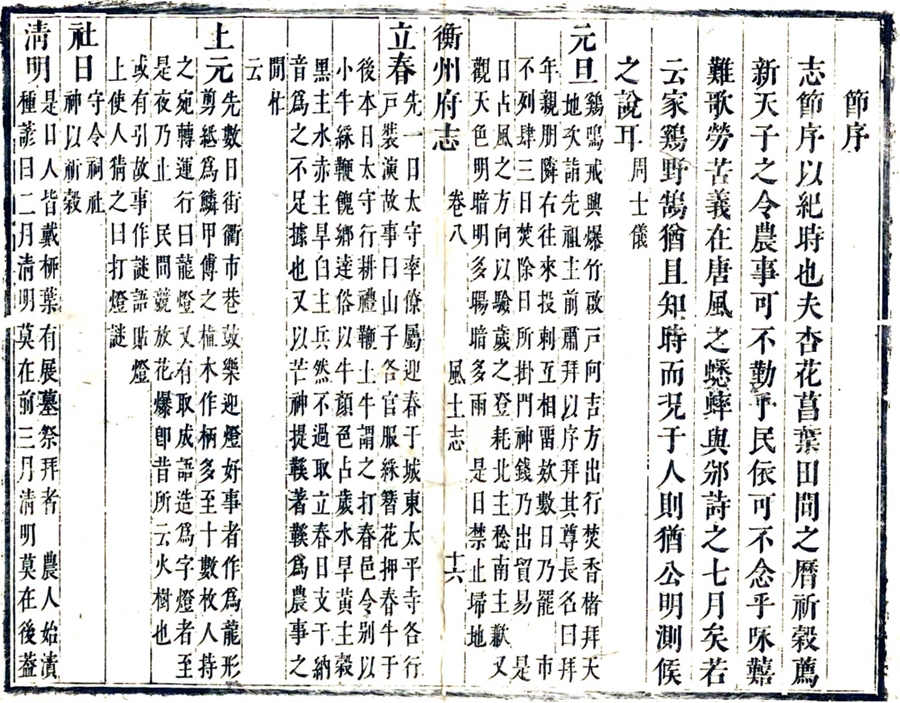 節序
志節序以紀時也夫杏花菖葉田間之曆祈穀薦
新天子之令農事可不勤乎民依可不念乎咏囏
難歌勞苦義在唐風之蟋蟀與邠詩之七月矣若
云家鷄野鵠猶且知時而況于人則猶公明測候
之說耳 周士儀
元旦 鷄鳴戒興爆竹啟戸向吉方出行焚香楮拜天
地次詣先祖主前肅拜以序拜其尊長名曰拜
年親朋隣右往來投刺互相畱欵數日乃罷 市
不列肆三日焚除日所掛門神錢乃出貿易 是
日占風之方向以驗歲之登耗北主稔南主歉又
觀天色明暗明多暘暗多雨 是日禁止埽地
衡州府志 卷八 風土志 十六
立春 先一日太守率僚屬迎春于城東太平寺各行
戸裝演故事曰山子各官服綵簪花押春牛于
後本日太守行耕禮鞭土牛謂之打春邑令別以
小牛綵鞭餽鄉達俗以牛顏色占歲水旱黃主穀
黑主水赤主旱白主兵然不過取立春日支干納
音爲之不足據也又以芒神提鞵著鞵爲農事之
閒忙
云
上元 先數日街衢市巷鼓樂迎燈好事者作爲龍形
剪紙爲鱗甲傅之植木作柄多至十數枚人持
之宛轉運行曰龍燈又有取成語造爲字燈者至
是夜乃止 民間競放花爆卽昔所云火樹也
或有引故事作謎語貼燈
上使人猜之曰打燈謎
社日 守令祠社
神以祈穀
淸明 是日人皆戴柳葉有展墓祭拜者 農人始漬
種諺曰二月淸明莫在前三月淸明莫在後蓋